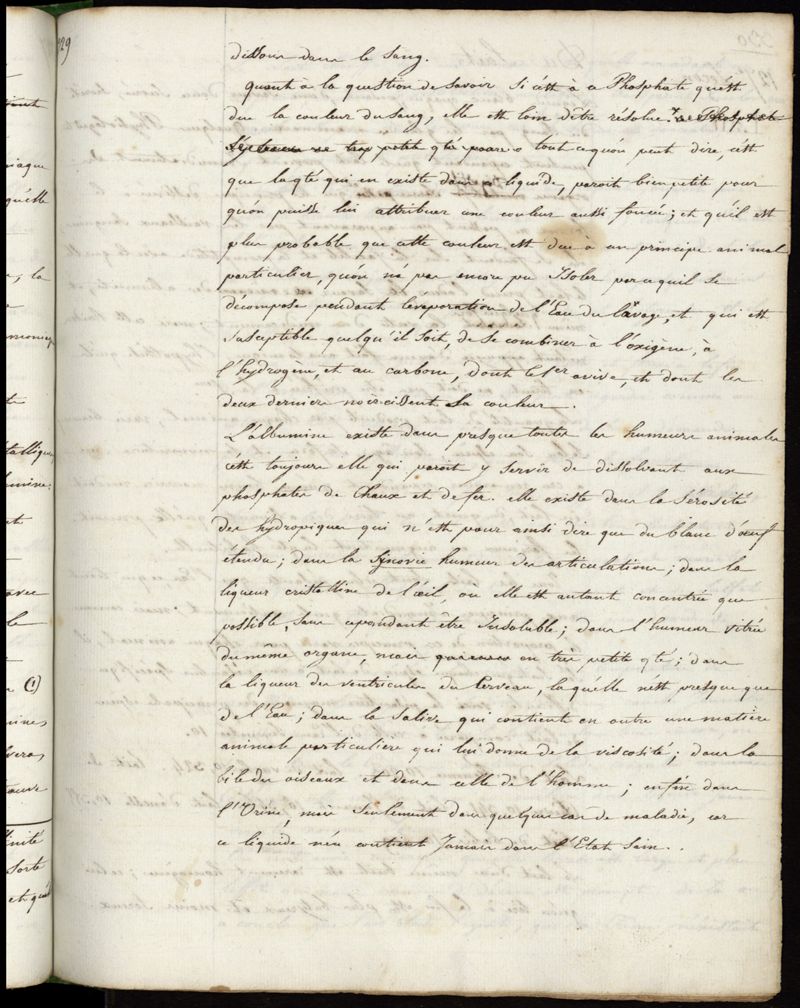 329
dissous dans le sang.
Quant à la question de savoir si c'est à ce Phosphate qu'est
due la couleur du sang, elle est loin d'être résolue. ce Phosphate
trop petite qté pour tout ce qu'on peut dire, c'est
que la qté qui en existe dans ce liquide, paroit bien petite pour
qu'on puisse lui attribuer une couleur aussi foncée; et qu'il est
plus probable que cette couleur est due à un principe animal
particulier, qu'on n'a pas encore pu Isoler parcequ'il se
décompose pendant l'évaporation de l'Eau du lavage, et qui est
susceptible quelqu'il soit, de se combiner à l'oxigène, à
l'hydrogène, et au carbone, dont le 1er avive, et dont les
deux derniers noircissent sa couleur.
L'albumine existe dans presque toutes les humeurs animales
c'est toujours elle qui paroit y servir de dissolvant aux
phosphates de Chaux et de fer. elle existe dans la sérosité
des hydropiques qui n'est pour ainsi dire que du blanc d'œuf
étendu; dans la synovie humeur des articulations; dans la
liqueur cristalline de l'œil, où elle est autant concentrée que
possible, sans cependant être Insoluble; dans l'humeur vitrée
du même organe, mais en très petite qté; dans
la liqueur des ventricules du Cerveau, laquelle n'est presque que
de l'Eau; dans la salive qui contient en outre une matière
animale particuliere qui lui donne de la viscosité; dans la
bile des oiseaux et dans celle de l'homme; enfin dans
l'Urine, mais seulement dans quelques cas de maladie, car
ce liquide n'en contient Jamais dans l'Etat Sain.